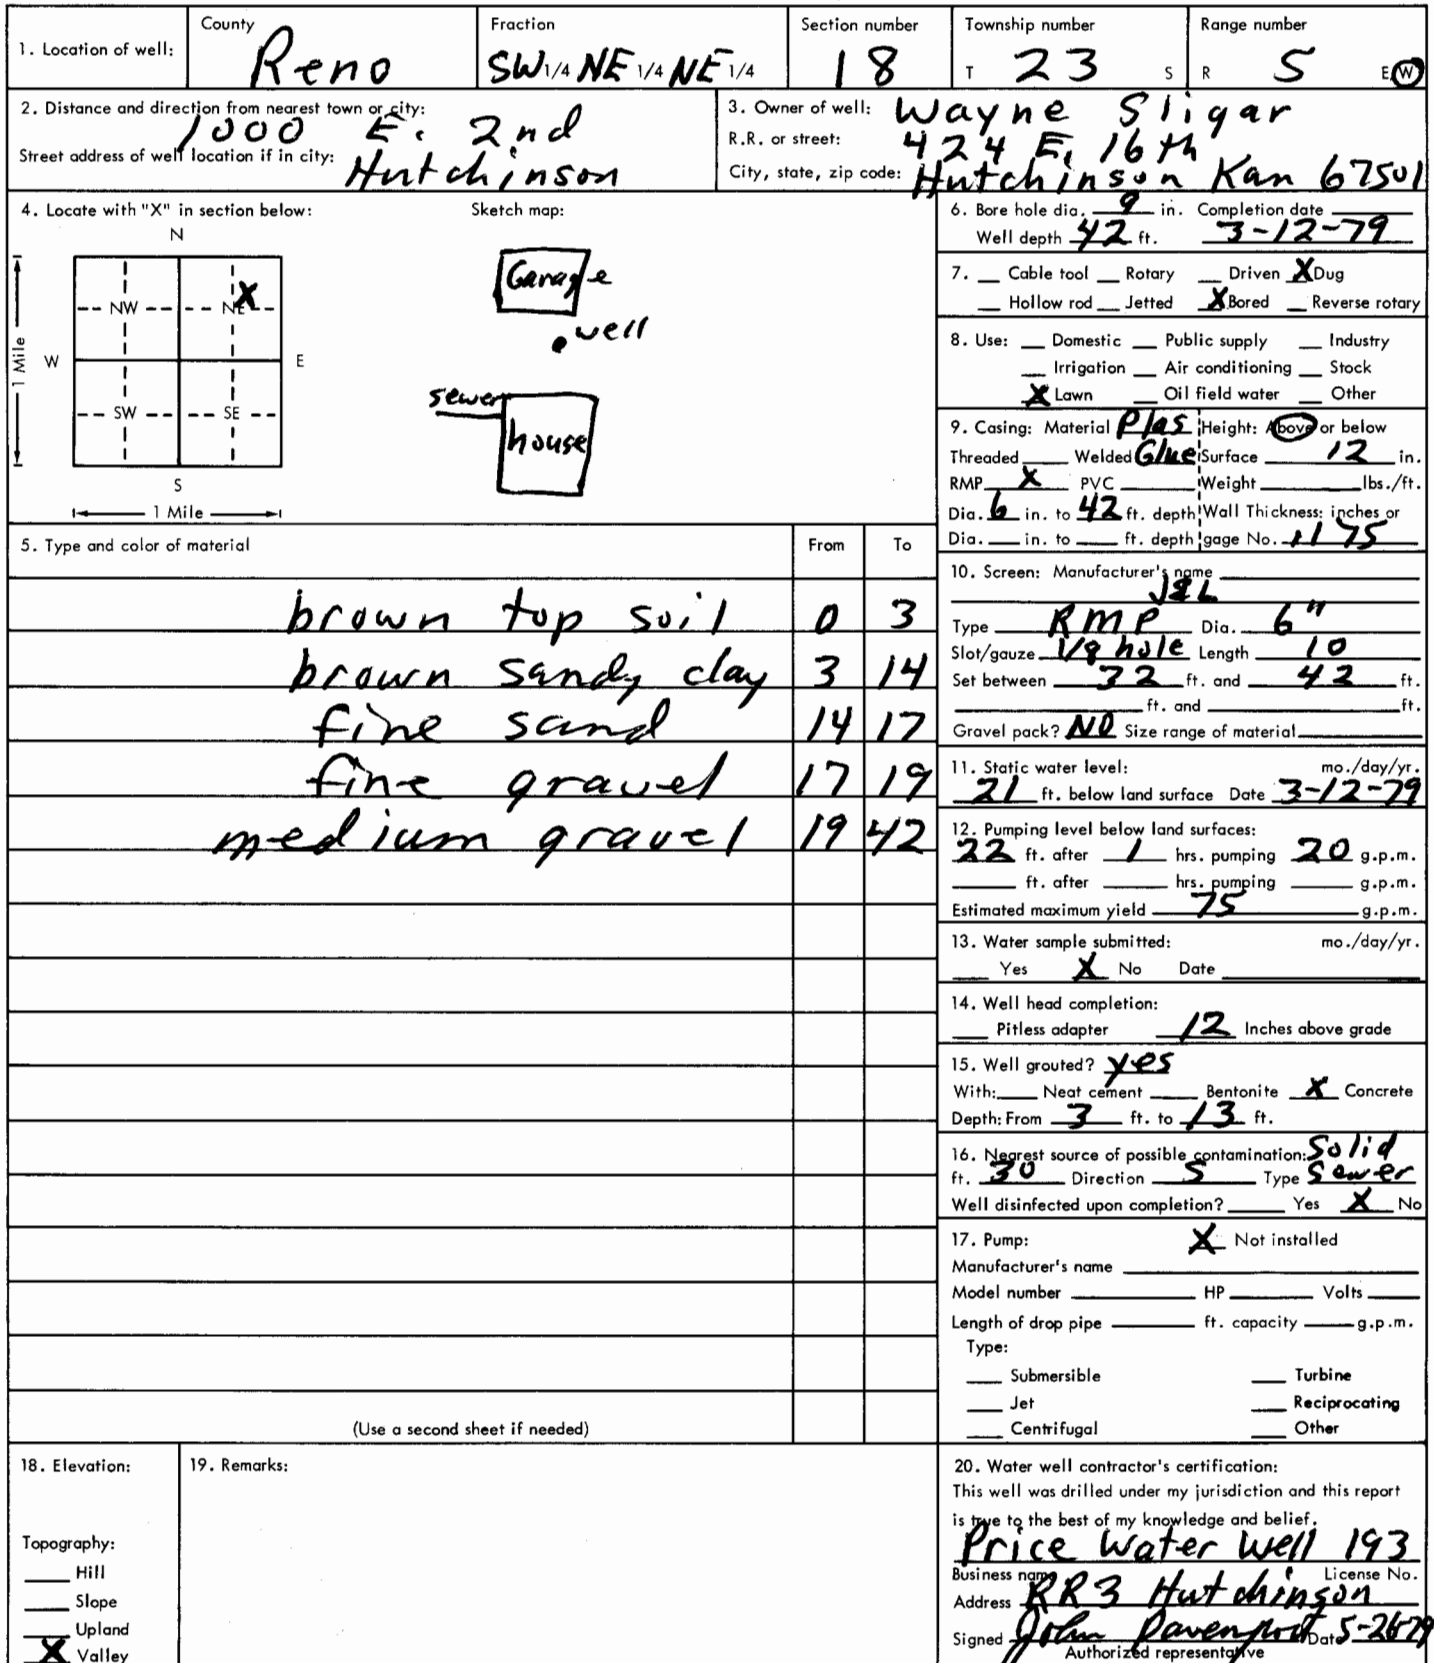 County Fraction Section number Township number Range number
1. Location of well: Reno SW 1/4 NE 1/4 NE 1/4 18 T 23 S R 5 E/W
2. Distance and direction from nearest town or city: 1000 E. 2nd
Street address of well location if in city: Hutchinson
3. Owner of well: Wayne Sligar
R.R. or street: 424 E. 16th
City, state, zip code: Hutchinson Kan 67501
4. Locate with "X" in section below: Sketch map:
N
NW NE X
W E
SW SE
S
1 Mile
1 Mile
Garage
well
sewer
house
6. Bore hole dia. 9 in. Completion date
Well depth 42 ft. 3-12-79
7. Cable tool Rotary Driven X Dug
Hollow rod Jetted X Bored Reverse rotary
8. Use: Domestic Public supply Industry
Irrigation Air conditioning Stock
X Lawn Oil field water Other
9. Casing: Material Plas Height: Above or below
Threaded Welded Glue Surface 12 in.
RMP X PVC Weight lbs./ft.
Dia. 6 in. to 42 ft. depth Wall Thickness: inches or
Dia. in. to ft. depth gage No.
5. Type and color of material From To
brown top soil 0 3
brown sandy clay 3 14
fine sand 14 17
fine gravel 17 19
medium gravel 19 42
(Use a second sheet if needed)
10. Screen: Manufacturer's name
J&L
Type RMP Dia. 6"
Slot/gauze 1/8 hole Length 10
Set between 32 ft. and 42 ft.
ft. and ft.
Gravel pack? NO Size range of material
11. Static water level: mo./day/yr.
21 ft. below land surface Date 3-12-79
12. Pumping level below land surfaces:
22 ft. after 1 hrs. pumping 20 g.p.m.
ft. after hrs. pumping g.p.m.
Estimated maximum yield 75 g.p.m.
13. Water sample submitted: mo./day/yr.
Yes X No Date
14. Well head completion:
Pitless adapter 12 Inches above grade
15. Well grouted? yes
With: Neat cement Bentonite X Concrete
Depth: From 3 ft. to 13 ft.
16. Nearest source of possible contamination: Solid
ft. 30 Direction S Type Sewer
Well disinfected upon completion? Yes X No
17. Pump: X Not installed
Manufacturer's name
Model number HP Volts
Length of drop pipe ft. capacity g.p.m.
Type:
Submersible Turbine
Jet Reciprocating
Centrifugal Other
18. Elevation:
Topography:
Hill
Slope
Upland
X Valley
19. Remarks:
20. Water well contractor's certification:
This well was drilled under my jurisdiction and this report
is true to the best of my knowledge and belief.
Price Water Well 193
Business name License No.
Address RR3 Hutchinson
Signed John Davenport Date 5-26-79
Authorized representative